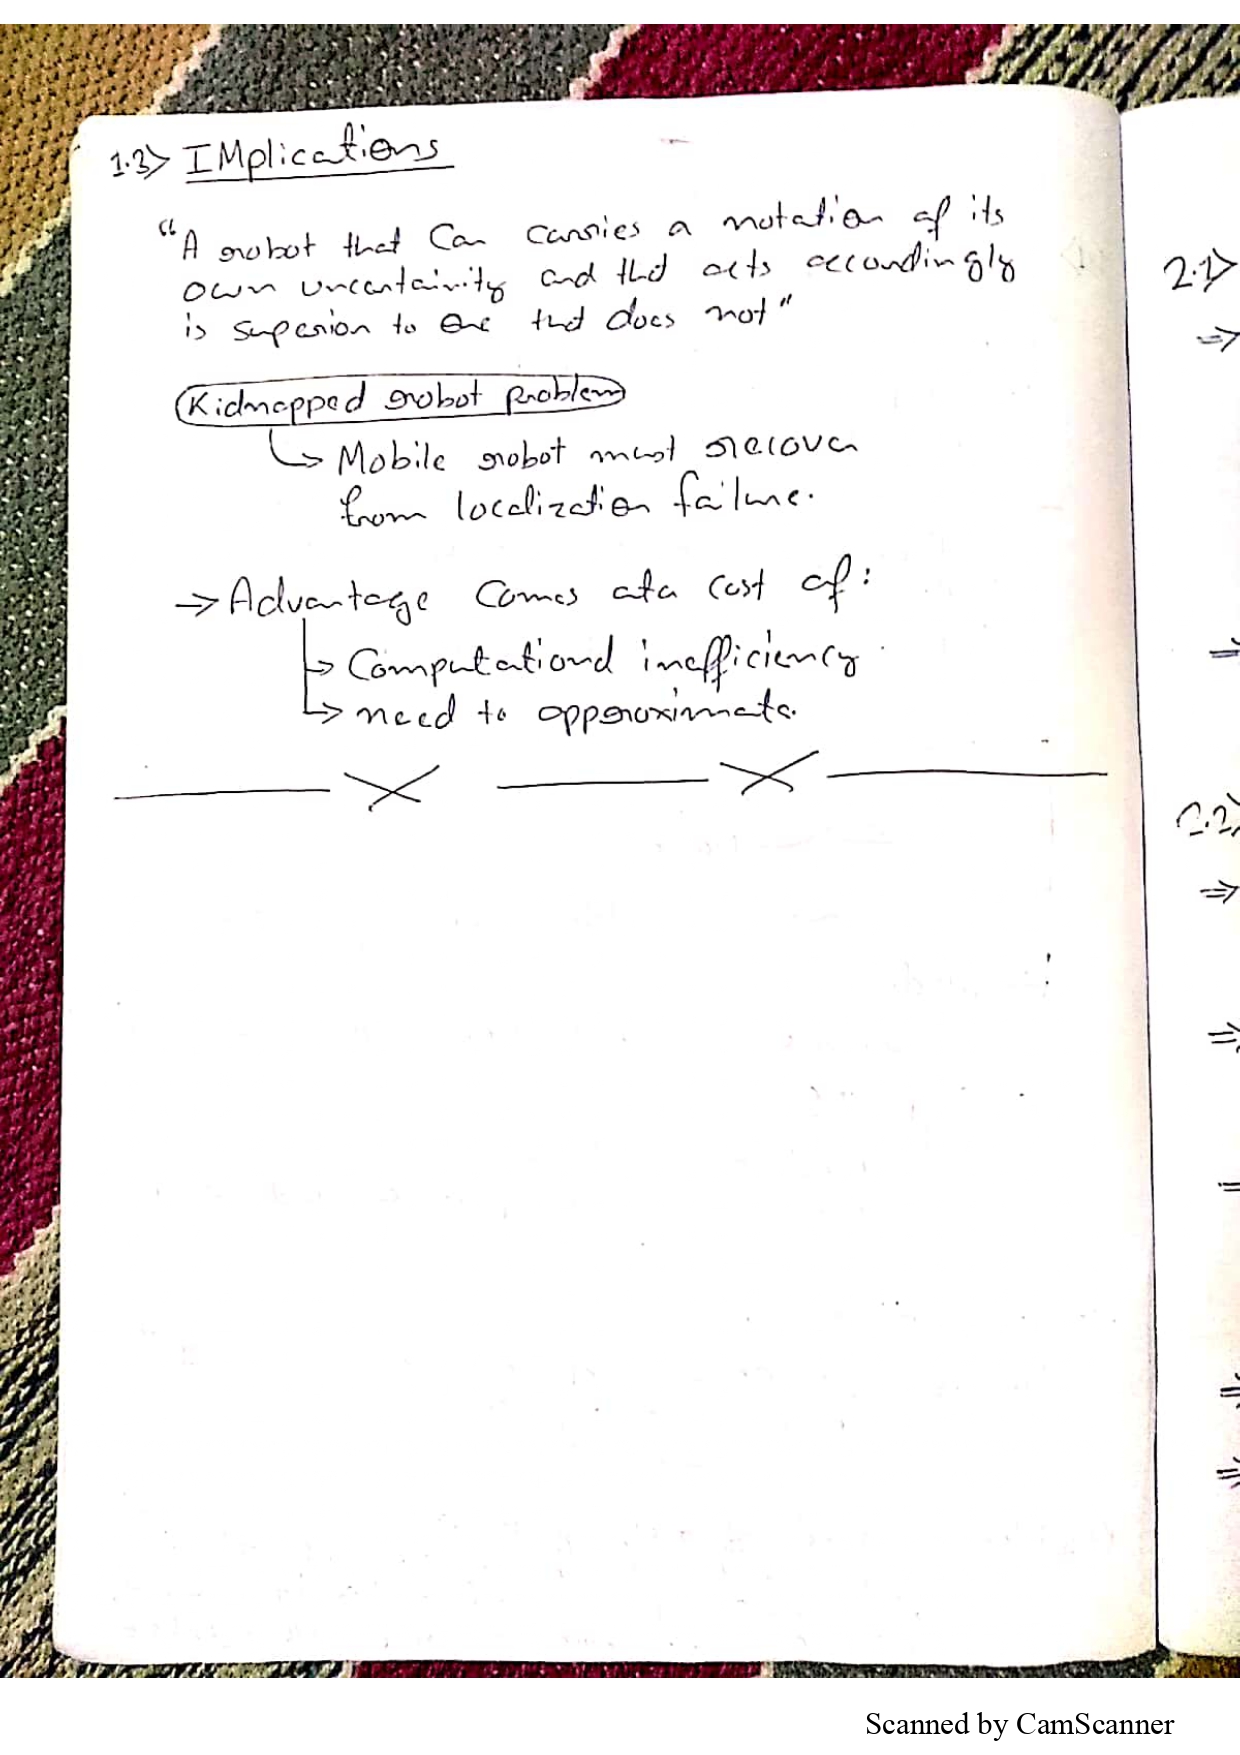 1.3> IMplications
"A robot that Can carries a notation of its
own uncertainity and that acts accordingly
is superior to one that does not"
Kidnapped robot problem
↳ Mobile robot must recover
from localization failure.
→ Advantage comes at a cost of:
↳ Computational inefficiency
↳ need to approximate.
2.1>
⇒
⇒
2.2>
⇒
⇒
⇒
⇒
⇒
Scanned by CamScanner